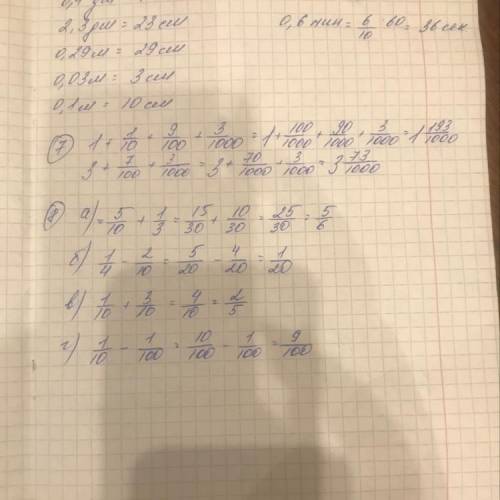 2,3 дм = 23 см
0,6 мин = 6/10 · 60 = 36 сек
0,29 м = 29 см
0,03 м = 3 см
0,1 м = 10 см
7) 1 + 1/10 + 9/100 + 3/1000 = 1 + 100/1000 + 90/1000 + 3/1000 = 1 193/1000
3 + 7/100 + 3/1000 = 3 + 70/1000 + 3/1000 = 3 73/1000
8) а) = 5/10 + 1/3 = 15/30 + 10/30 = 25/30 = 5/6
б) 1/4 - 2/10 = 5/20 - 4/20 = 1/20
в) 1/10 + 3/10 = 4/10 = 2/5
г) 1/10 - 1/100 = 10/100 - 1/100 = 9/100